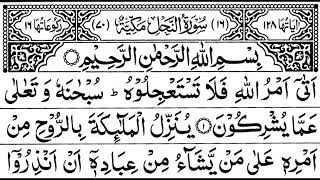 اٰیَاتُهَا ۱۲۸ (۱۶) سُوْرَةُ النَّحْلِ مَكِّيَّةٌ (۷۰) رُكُوْعَاتُهَا ۱۶
بِسْمِ اللّٰهِ الرَّحْمٰنِ الرَّحِیْمِ
اَتٰۤی اَمْرُ اللّٰهِ فَلَا تَسْتَعْجِلُوْهُ ؕ سُبْحٰنَهٗ وَ تَعٰلٰی
عَمَّا یُشْرِكُوْنَ ۱ یُنَزِّلُ الْمَلٰٓىِٕكَةَ بِالرُّوْحِ مِنْ
اَمْرِهٖ عَلٰی مَنْ یَّشَآءُ مِنْ عِبَادِهٖۤ اَنْ اَنْذِرُوْۤا